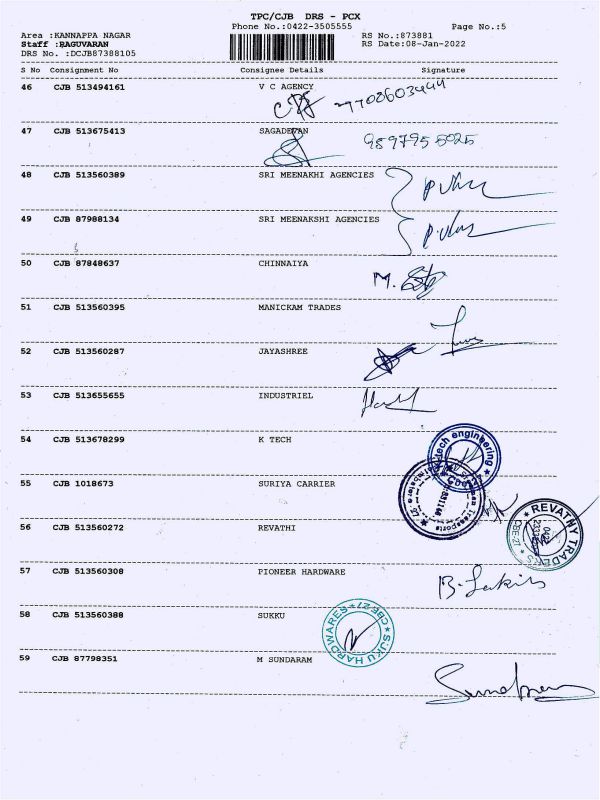 TPC/CJB DRS - PCX
Phone No.:0422-3505555
Page No.:5
Area :KANNAPPA NAGAR
RS No.:873881
Staff :RAGUVARAN
RS Date:08-Jan-2022
DRS No. :DCJB87388105
S No Consignment No Consignee Details Signature
46 CJB 513494161 V C AGENCY
9708603444
47 CJB 513675413 SAGADEVAN
9597955025
48 CJB 513560389 SRI MEENAKHI AGENCIES
49 CJB 87988134 SRI MEENAKSHI AGENCIES
50 CJB 87848637 CHINNAIYA
M.
51 CJB 513560395 MANICKAM TRADES
52 CJB 513560287 JAYASHREE
53 CJB 513655655 INDUSTRIEL
54 CJB 513678299 K TECH
tech engineering
55 CJB 1018673 SURIYA CARRIER
Transports
56 CJB 513560272 REVATHI
REVATHY TRADERS
CBE-27
57 CJB 513560308 PIONEER HARDWARE
58 CJB 513560388 SUKKU
SUKU HARDWARES
CBE-27
59 CJB 87798351 M SUNDARAM